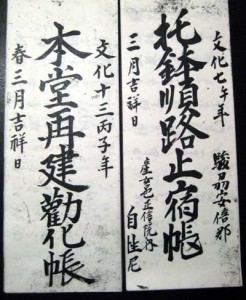 文化七午年
駿刕安倍郡
托鉢順路止宿帳
産女邑正信院内
三月吉祥日
自生尼
文化十三丙子年
本堂再建勸化帳
春三月吉祥日